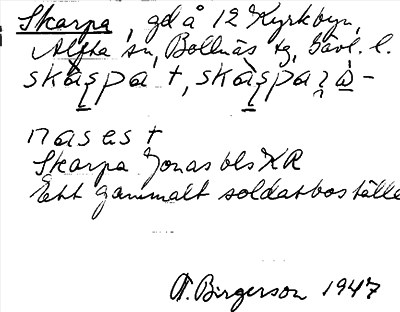 Skarpa, gd å 12 Kyrkbyn,
Alfta sn, Bollnäs tg, Gävl. l.
skàṣpa +, skàṣpa
nases +
Skarpa Jonas bls XR
Ett gammalt soldatboställe
A. Birgerson 1947